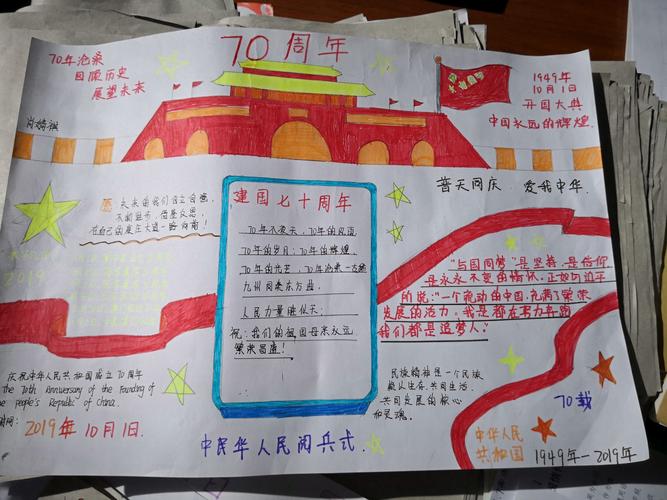 70周年
70年沧桑
回顾历史
展望未来
1949年
10月1日
开国大典
中国长远的辉煌.
普天同庆. 爱我中华.
愿 未来的我们自立自强,
在自己的康庄大道一路向前!
建国七十周年
70年不夜天,70年的风雨
70年的岁月;70年的辉煌
九州同奏东方曲
人民力量胜似天;
祝:我们的祖国母亲永远
繁荣昌盛!
"与国同梦"是坚持,是信仰
是永久不变的情怀,正如习近平
所说:"一个流动的中国,充满了繁荣
发展的活力。我是都在努力奔跑
我们都是追梦人."
2019
庆祝中华人民共和国成立70周年
The 70th Anniversary of the Founding of
the People's Republic of China.
时间:
2019年10月1日.
中民华人民阅兵式.
民族精神是一个民族
赖以生存.共同生活.
共同发展的核心
和灵魂.
70载
中华人民
共和国
1949年-2019年